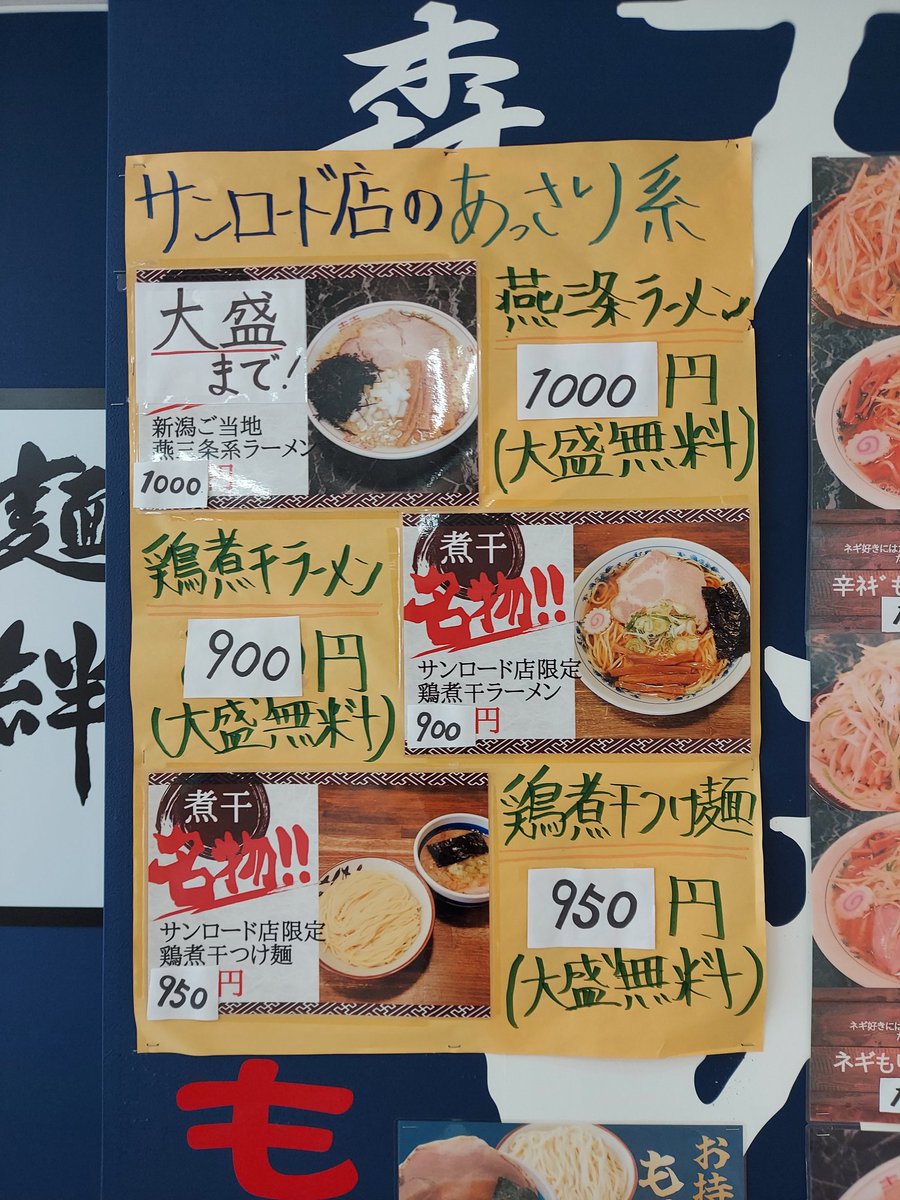 森
サンロード店のあっさり系
大盛
まで!
新潟ご当地
燕三条系ラーメン
1000円
燕三条ラーメン
1000円
(大盛無料)
鶏煮干ラーメン
900円
(大盛無料)
煮干
名物!!
サンロード店限定
鶏煮干ラーメン
900円
煮干
名物!!
サンロード店限定
鶏煮干つけ麺
950円
鶏煮干つけ麺
950円
(大盛無料)
麺
絆
も
お持
も
ネギ好きには
辛ネギも
ネギ好きには
ネギも